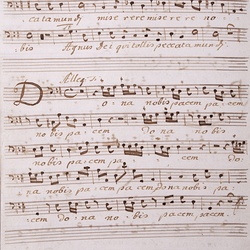 catamundj miserere misere re no
bis Agnus Dei qui tollis peccata mundj
Alleg:
Dona nobis pacem pacem
nobis pacem dona nobis
nobis pacem pa cem do
na nobis pacem pacem dona nobis pa
cem dona nobis pacem pacem.